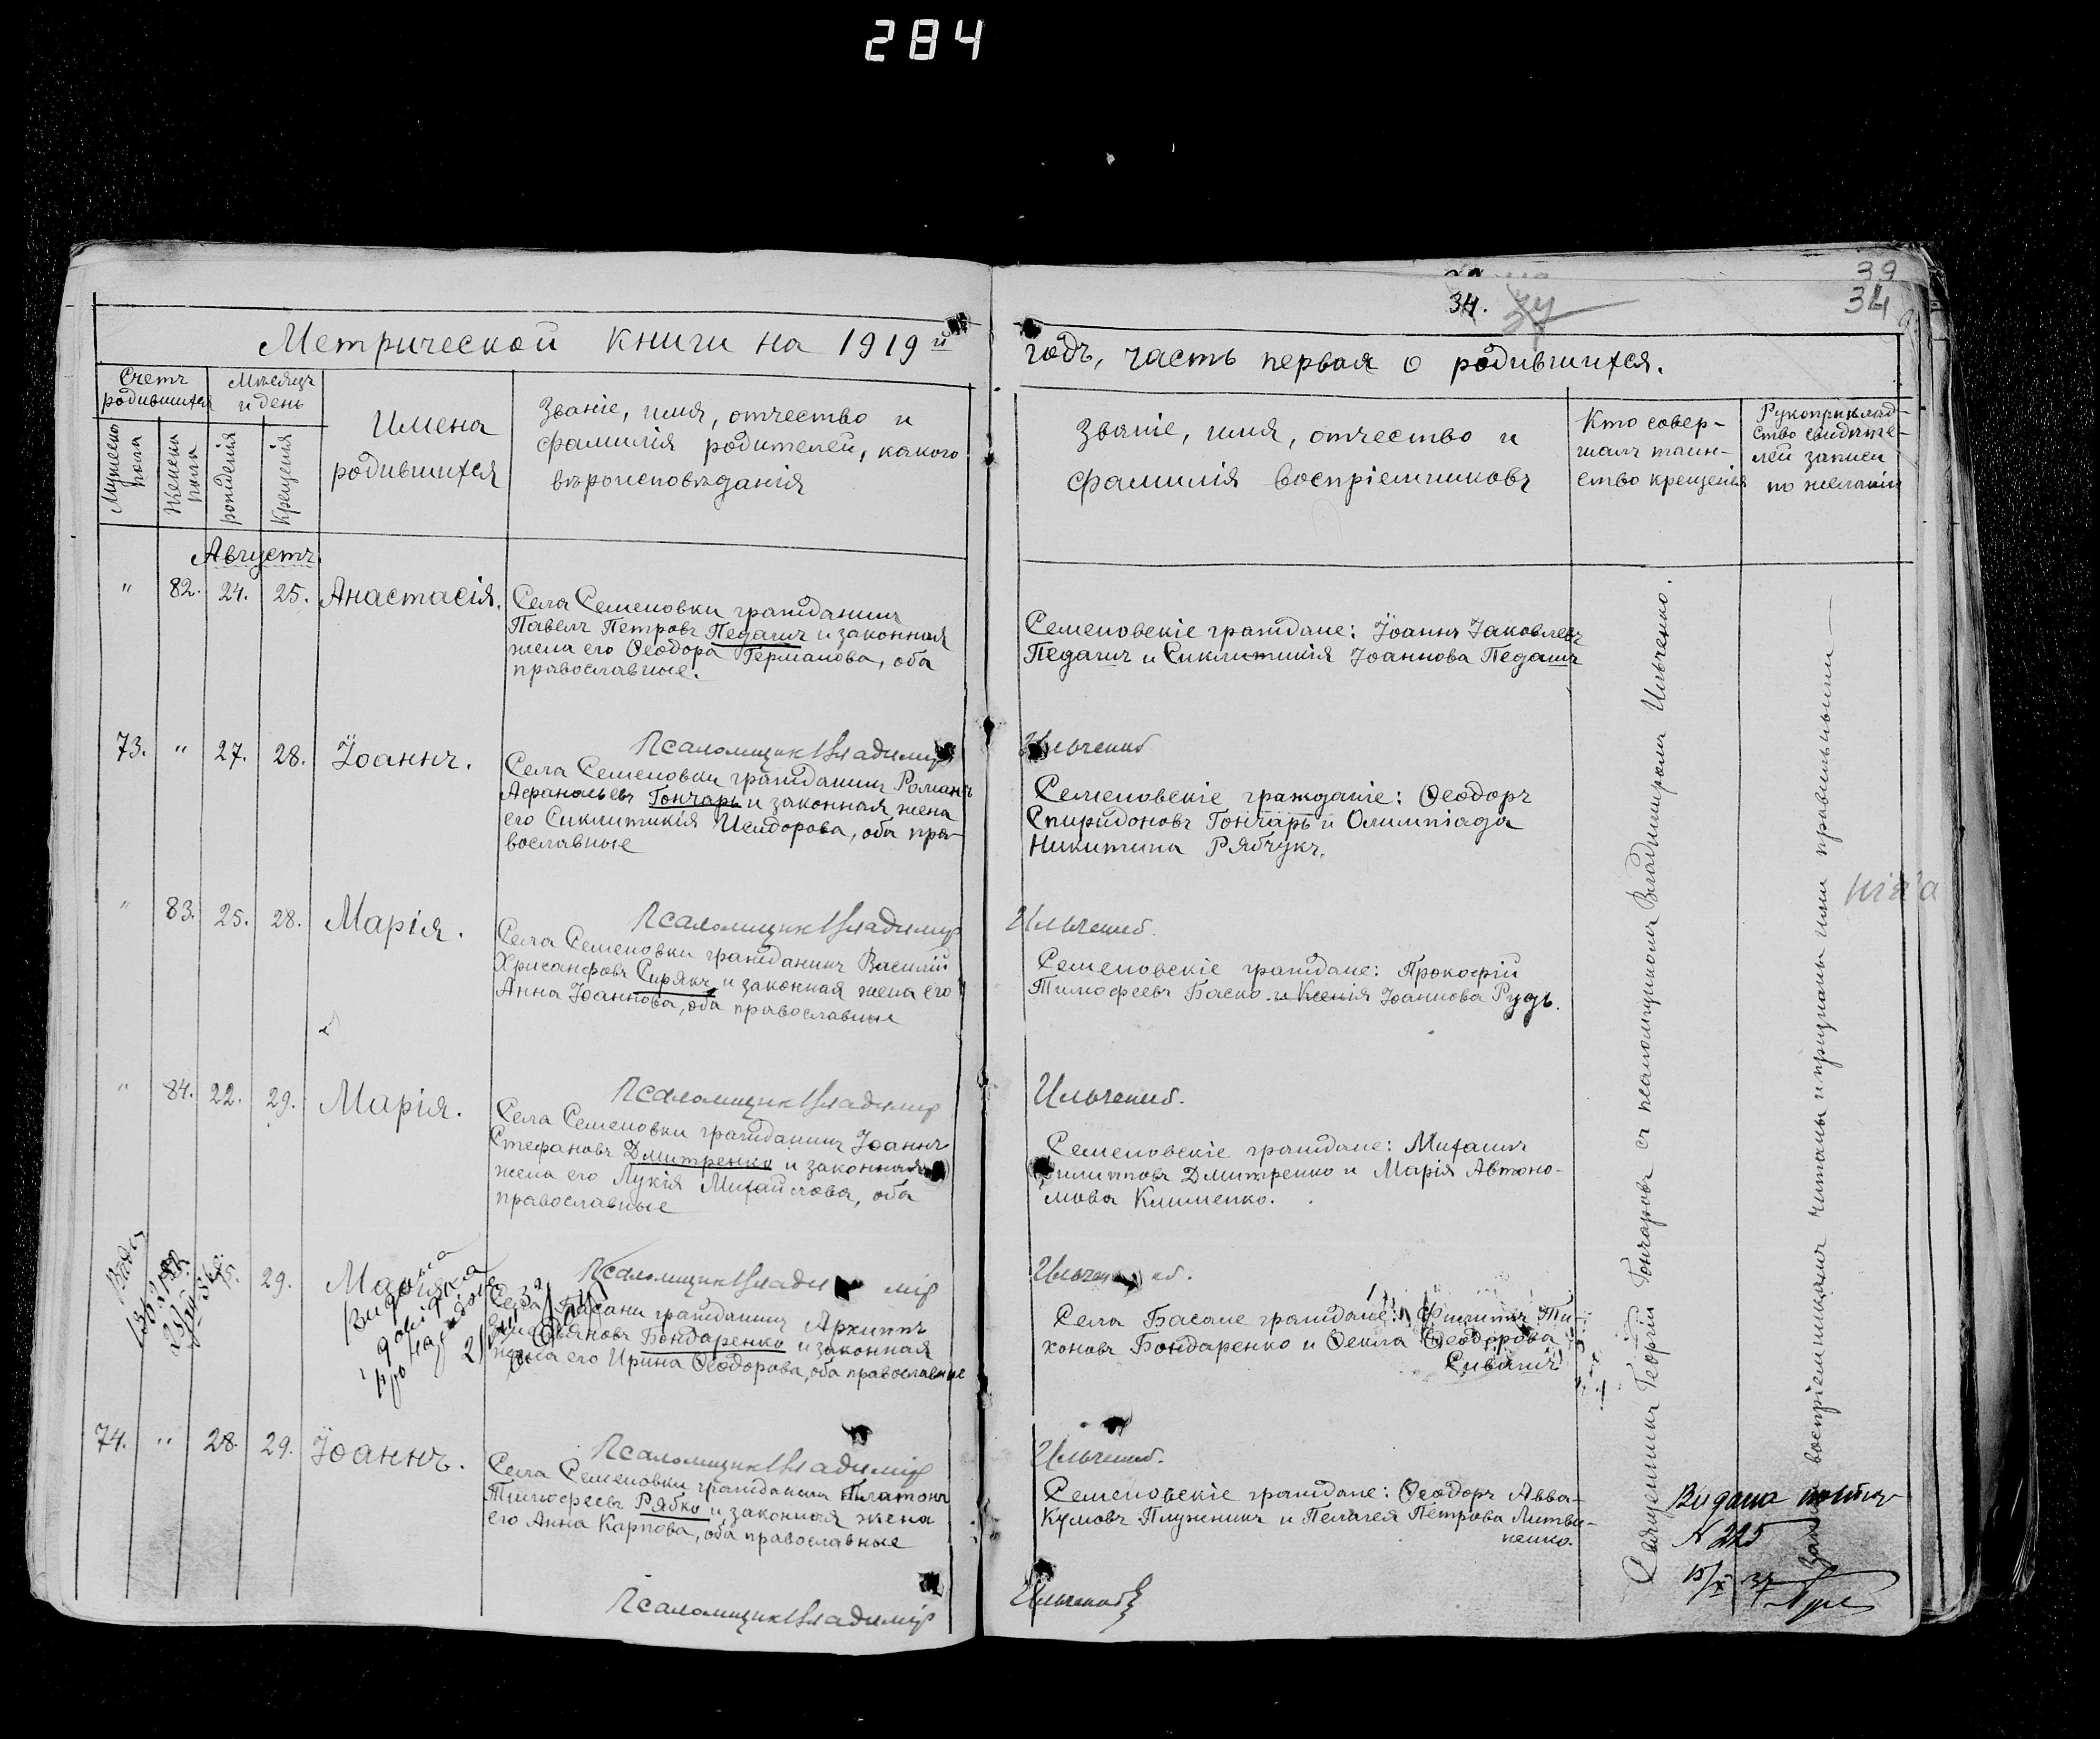 284
39
34.
34
Метрической книги на 1919й
годъ, часть первая о родившихся.
Счетъ родившихся
Мѣсяцъ и день
Мужеска пола
Женска пола
рожденія
крещенія
Имена
родившихся
Званіе, имя, отчество и
фамилія родителей, какого
вѣроисповѣданія
Званіе, имя, отчество и
фамилія воспріемниковъ
Кто совер-
шалъ таин-
ство крещенія
Рукоприклад-
ство свидѣте-
лей записи
по желанію
Августъ.
" 82. 24. 25. Анастасія.
Села Семеновки гражданинъ
Павелъ Петровъ Педашъ и законная
жена его Ѳеодора Германова, оба
православные.
Семеновскіе граждане: Іоаннъ Іаковлевъ
Педашъ и Сиклитикія Іоаннова Педашъ
Псаломщикъ Владимір Ильченко
73. " 27. 28. Іоаннъ.
Села Семеновки гражданинъ Романъ
Афанасьевъ Гончаръ и законная жена
его Сиклитикія Исидорова, оба пра-
вославные
Семеновскіе гражданіе: Ѳеодоръ
Спиридоновъ Гончаръ и Олимпіада
Никитина Рябчукъ.
Псаломщикъ Владимір Ильченко.
" 83. 25. 28. Марія.
Села Семеновки гражданинъ Василій
Хрисанфовъ Сирякъ и законная жена его
Анна Іоаннова, оба православные
Семеновскіе граждане: Прокофій
Тимофеевъ Баско и Ксенія Іоаннова Рудь.
Псаломщикъ Владимір Ильченко.
" 84. 22. 29. Марія.
Села Семеновки гражданинъ Іоаннъ
Стефановъ Дмитренко и законная
жена его Лукія Михайлова, оба
православные
Семеновскіе граждане: Михаилъ
Филипповъ Дмитренко и Марія Автоно-
мова Клименко.
Псаломщикъ Владимір Ильченко.
29. Марія
Видана
довідка
про народження
Села Басани гражданинъ Архиппъ
Бондаренко и законная
жена его Ирина Ѳеодорова, оба православные
Села Басане граждане: Филиппъ Ти-
хоновъ Бондаренко и Ѳекла Ѳеодорова
Сивашъ
Псаломщикъ Владимір Ильченко.
74. " 28. 29. Іоаннъ.
Села Семеновки гражданинъ Платонъ
Тимофеевъ Рябко и законная жена
его Анна Карпова, оба православные
Семеновскіе граждане: Ѳеодоръ Авва-
кумовъ Плужникъ и Пелагея Петрова Литви-
ненко.
Псаломщикъ Владимір Ильченко
Священникъ Георгій Гончаровъ съ псаломщикомъ Владиміромъ Ильченко.
воспріемникамъ читаны и признаны ими правильными
Видана
N 225